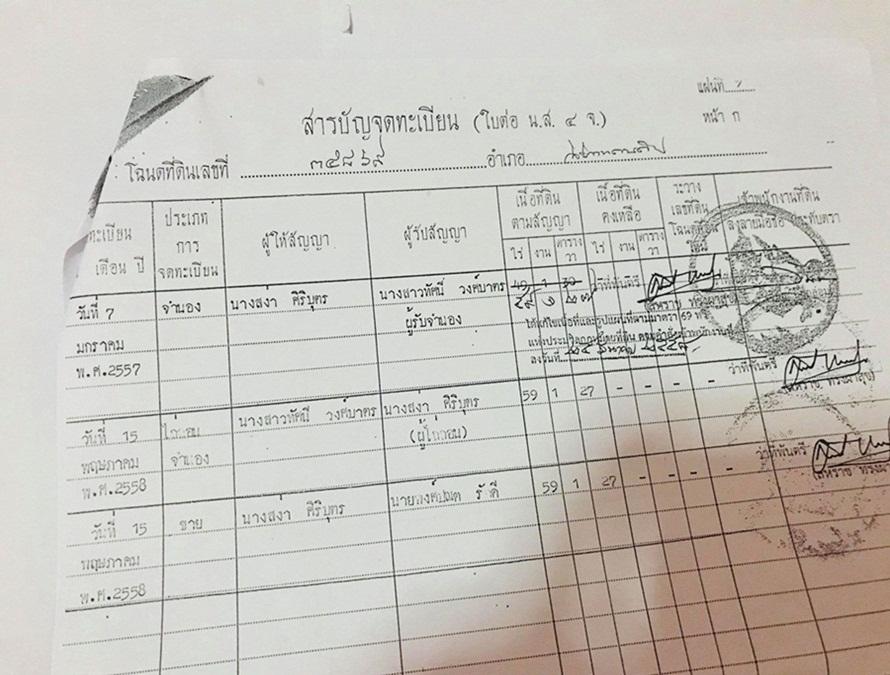 แผ่นที่
สารบัญจดทะเบียน (ใบต่อ น.ส. ๔ จ.)
หน้า ก
โฉนดที่ดินเลขที่ ๓๕๘๖๙ อำเภอ
ทะเบียน
เดือน ปี
ประเภท
การ
จดทะเบียน
ผู้ให้สัญญา
ผู้รับสัญญา
เนื้อที่ดิน
ตามสัญญา
ไร่ งาน ตาราง
วา
เนื้อที่ดิน
คงเหลือ
ไร่ งาน ตาราง
วา
ระวาง
เลขที่ดิน
โฉนดที่ดิน
ใหม่
เจ้าพนักงานที่ดิน
ลงลายมือชื่อ ประทับตรา
วันที่ 7
มกราคม
พ.ศ.2557
จำนอง
นางสง่า ศิริบุตร
นางสาวทัศนี วงค์บาตร
ผู้รับจำนอง
๕๙ ๑ ๒๗
ว่าที่พันตรี
วันที่ 15
พฤษภาคม
พ.ศ.2558
ไถ่ถอน
จำนอง
นางสาวทัศนี วงค์บาตร
นางสง่า ศิริบุตร
(ผู้ไถ่ถอน)
59 1 27 - - - -
ว่าที่พันตรี
วันที่ 15
พฤษภาคม
พ.ศ.2558
ขาย
นางสง่า ศิริบุตร
59 1 27 - - - -
ว่าที่พันตรี